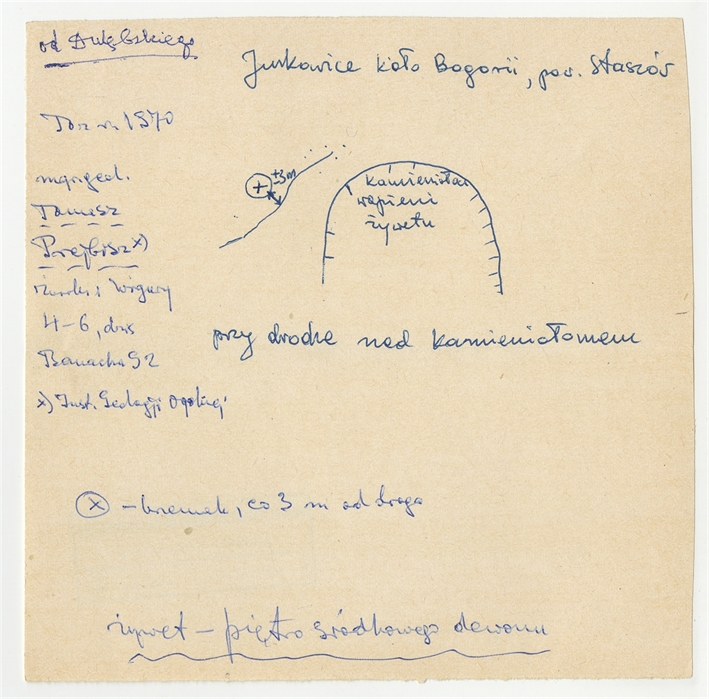 od Dulębskiego
Jurkowice koło Bogorii, pow. Staszów
1970
mgr geol.
Tomasz
x)
+
±3 m
kamieniołom
wapieni
żywetu
i Wigury
4-6, dws
Banacha 92
x) Inst. Geologii Ogólnej
przy drodze nad kamieniołomem
x
- krzemień, co 3 m od drogi
żywet - piętro środkowego dewonu